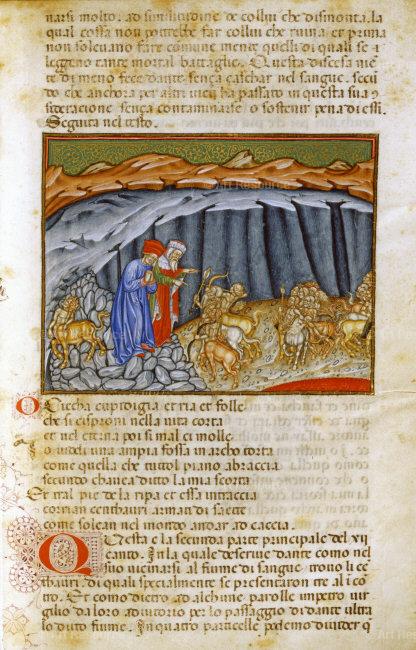 narsi molto. ad similitudine de collui che dismonta. la
qual cossa non potrebe far collui che ruina et prima
non soleuano fare comune mente quelli di quali se
leggeno tante mortal battaglie. Questa discesa nie
te di meno fece dante senca caschar nel sangue. secu
do che anchora per altri uicij ha passato in questa sua
federacione senca contaminarse o sostenir pena di essi.
Seguita nel testo.
Art Resource
O ciecha cupidigia et ria et folle
che si ci sproni nella uita corta
et nel eterna poi si mal ci molle
o uidi una ampia fossa in archo torta
come quella che tutol piano abraccia
secundo chauea ditto la mia scorta
Et tral pie de la ripa et essa intraccia
corrian centhauri armati di saette
come solean nel mondo andar ad caccia.
Questa e la secunda parte principale del xij
canto. In la quale descriue dante como nel
suo uicinarsi al fiume di sangue, trouo li ce
thauri di quali specialmente se presentaron tre al
tro. Et como dietro ad alchune parolle impetro uir
gilio da loro adiutorio per lo passaggio di dante ultra
lo dito fiume. In quatro particelle podemo diuider